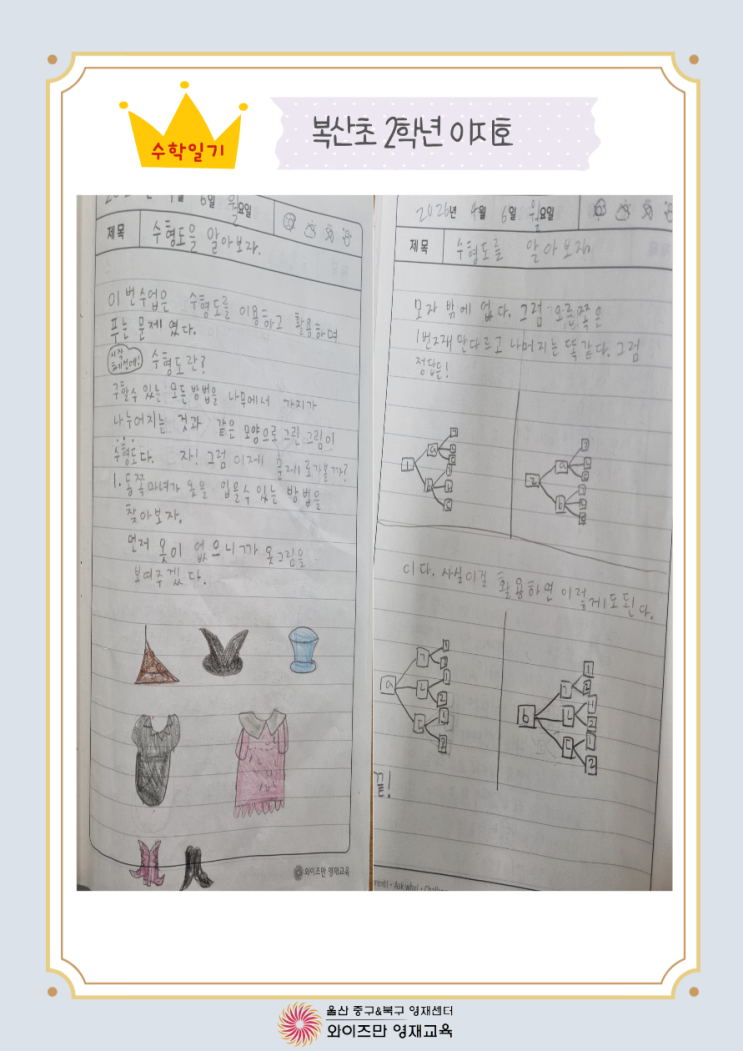 수학일기
복산초 2학년 이지호
4월 6일 월요일
제목 수형도을 알아보자.
이번수업은 수형도를 이용하고 활용하며
푸는 문제였다.
수형도란?
구할수 있는 모든 방법을 나무에서 가지가
나누어지는 것과 같은 모양으로 그린 그림이
수형도다. 자! 그럼 이제
1. 동쪽마녀가 옷을 입을수 있는 방법을
찾아보자.
먼저 옷이 없으니까 옷그림을
보여주겠다.
와이즈만 영재교육
2026년 4월 6일 월요일
제목 수형도를 알아보자
모자 밖에 없다. 그럼 오른쪽은
1번2재만다르고 나머지는 똑같다. 그럼
정답은!
이다. 사실이걸 활용하면 이렇게도된다.
끝!
울산 중구&북구 영재센터
와이즈만 영재교육